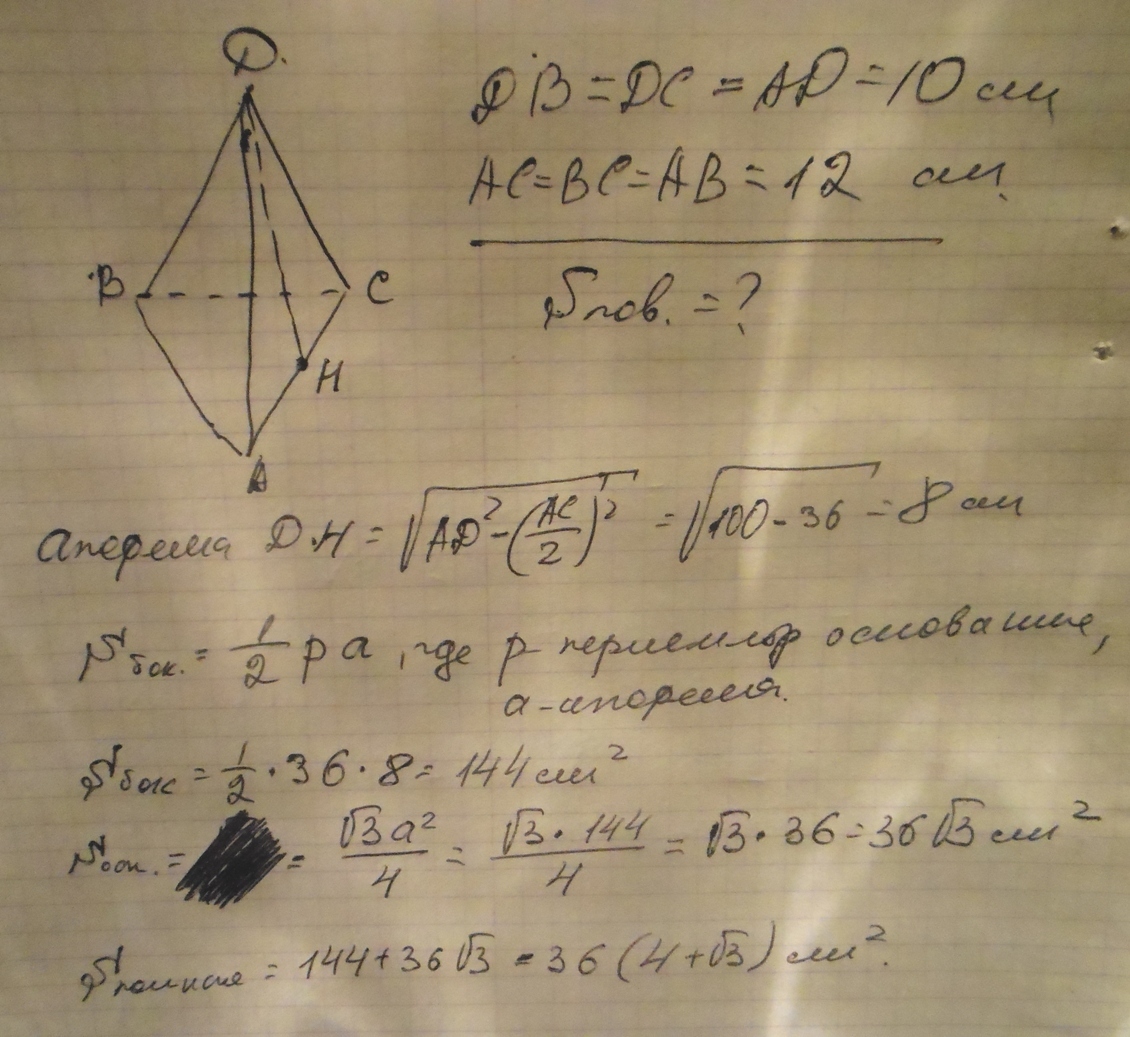 D.
B
C
H
A
DB = DC = AD = 10 см
AC = BC = AB = 12 см.
Sпов. = ?
апофема DH = √(AD² - (AC/2)²) = √(100 - 36) = 8 см
Sбок. = 1/2 p a, где p - периметр основание,
a - апофема.
Sбок = 1/2 · 36 · 8 = 144 см²
Sосн. = = √3 a²/4 = √3 · 144/4 = √3 · 36 = 36√3 см²
Sполная = 144 + 36√3 = 36(4 + √3) см².